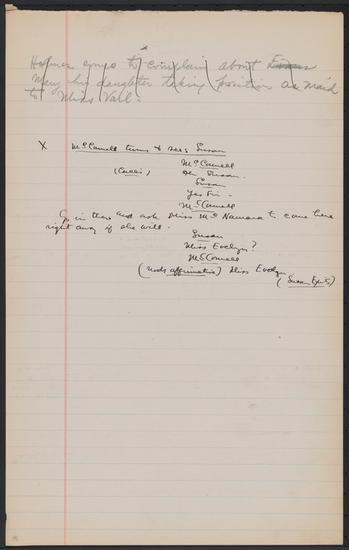 Holmes comes to complain about Evans
Mary his daughter taking position as maid
to Miss Vail.
X McConnell turns & sees Susan
McConnell
(Calls) Oh Susan.
Susan
Yes Sir.
McConnell
Go in there and ask Miss McNamara to come here
right away if she will.
Susan
Miss Evelyn?
McConnell
(nods affirmative) Miss Evelyn
(Susan Exits)